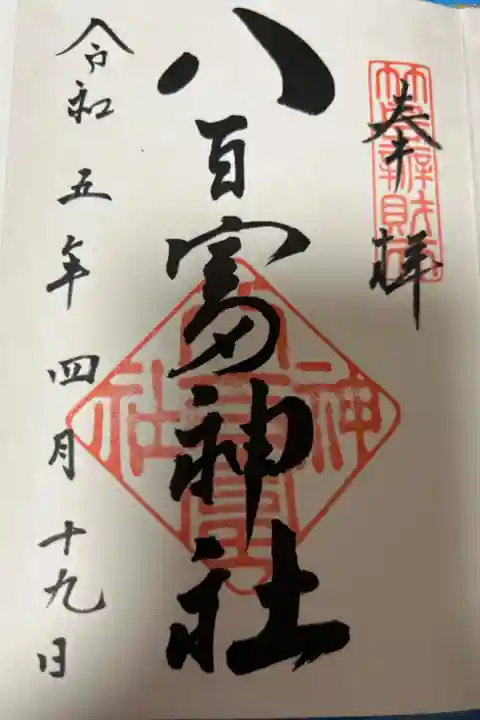 奉拝
八百富神社
令和五年四月十九日